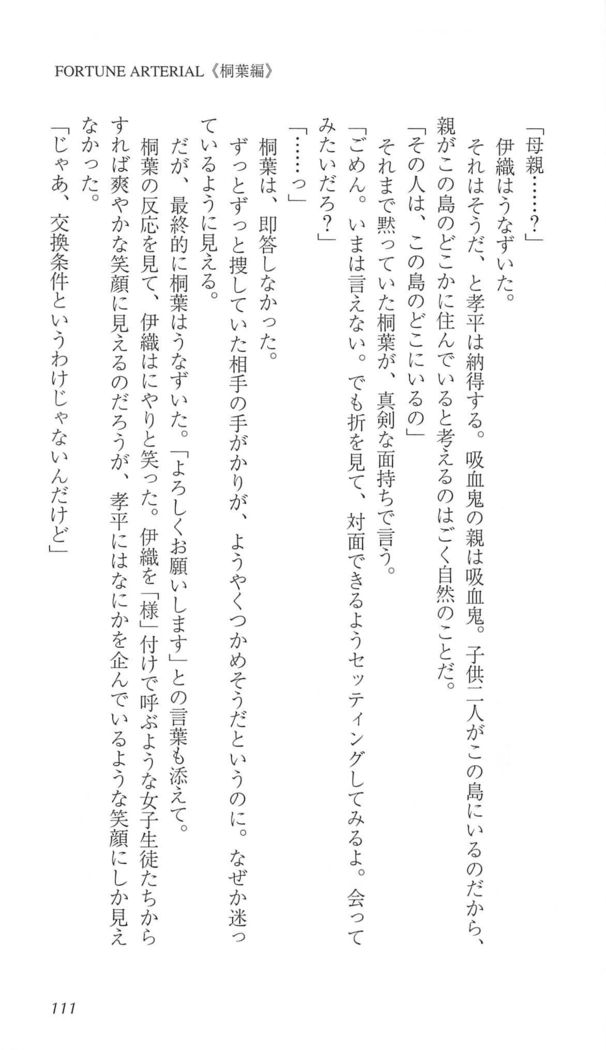 FORTUNE ARTERIAL《桐葉編》
「母親……？」
伊織はうなずいた。
それはそうだ、と孝平は納得する。吸血鬼の親は吸血鬼。子供二人がこの島にいるのだから、
親がこの島のどこかに住んでいると考えるのはごく自然のことだ。
「その人は、この島のどこにいるの」
それまで黙っていた桐葉が、真剣な面持ちで言う。
「ごめん。いまは言えない。でも折を見て、対面できるようセッティングしてみるよ。会って
みたいだろ？」
「……っ」
桐葉は、即答しなかった。
ずっとずっと捜していた相手の手がかりが、ようやくつかめそうだというのに。なぜか迷っ
ているように見える。
だが、最終的に桐葉はうなずいた。「よろしくお願いします」との言葉も添えて。
桐葉の反応を見て、伊織はにやりと笑った。伊織を「様」付けで呼ぶような女子生徒たちから
すれば爽やかな笑顔に見えるのだろうが、孝平にはなにかを企んでいるような笑顔にしか見え
なかった。
「じゃあ、交換条件というわけじゃないんだけど」
111